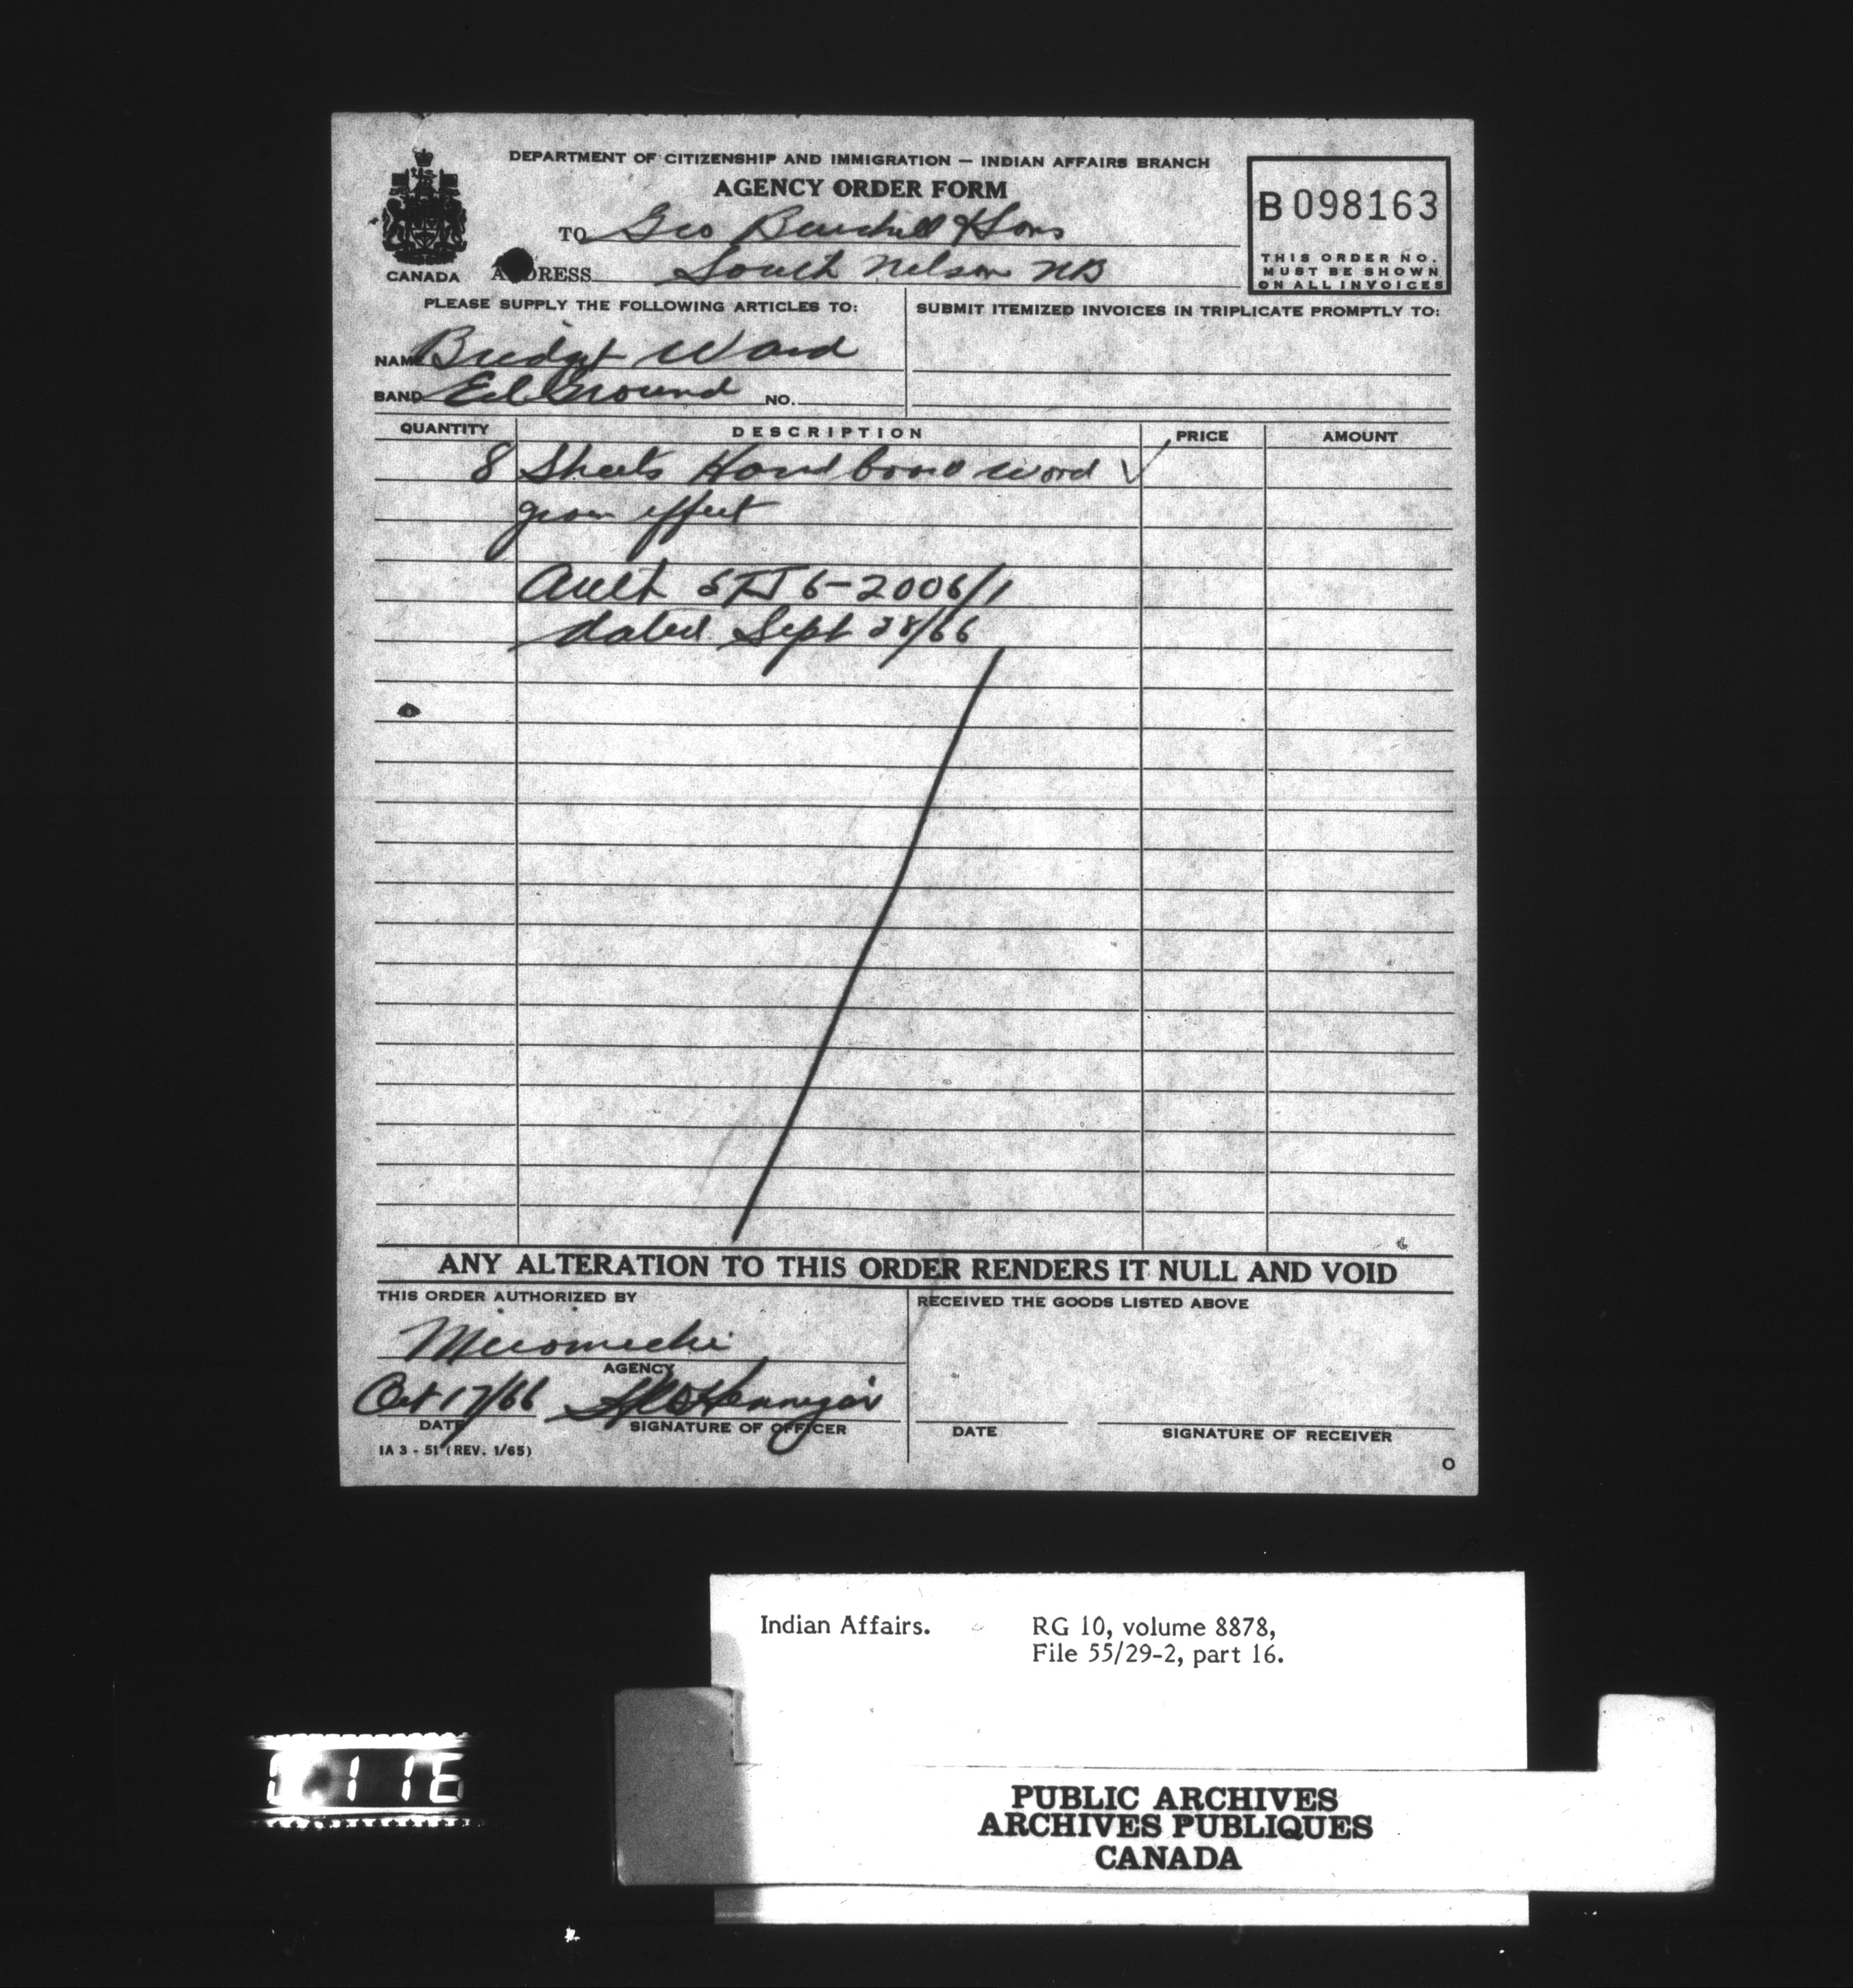 DEPARTMENT OF CITIZENSHIP AND IMMIGRATION — INDIAN AFFAIRS BRANCH
AGENCY ORDER FORM
B 098163
THIS ORDER NO.
MUST BE SHOWN
ON ALL INVOICES
CANADA
TO Geo Burchill & Sons
ADDRESS South Nelson NB
PLEASE SUPPLY THE FOLLOWING ARTICLES TO:
SUBMIT ITEMIZED INVOICES IN TRIPLICATE PROMPTLY TO:
NAME Bridget Ward
BAND Eel Ground NO.
QUANTITY DESCRIPTION PRICE AMOUNT
8 Sheets Hard board word ✓
effect
Auth 6-2006/1
dated Sept 28/66
ANY ALTERATION TO THIS ORDER RENDERS IT NULL AND VOID
THIS ORDER AUTHORIZED BY
RECEIVED THE GOODS LISTED ABOVE
Miramichi
AGENCY
Oct 17/66
DATE SIGNATURE OF OFFICER
DATE SIGNATURE OF RECEIVER
IA 3 - 51 (REV. 1/65)
O
Indian Affairs. RG 10, volume 8878,
File 55/29-2, part 16.
PUBLIC ARCHIVES
ARCHIVES PUBLIQUES
CANADA